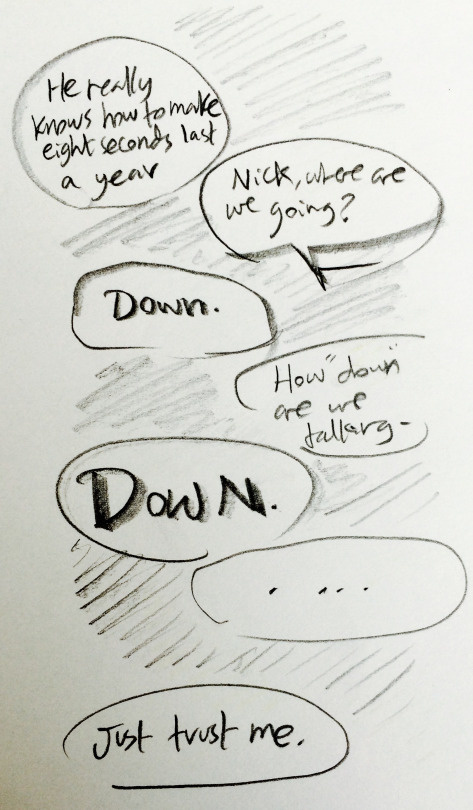 He really
knows how to make
eight seconds last
a year
Nick, where are
we going?
Down.
How "down"
are we
talking-
DOWN.
. ...
Just trust me.